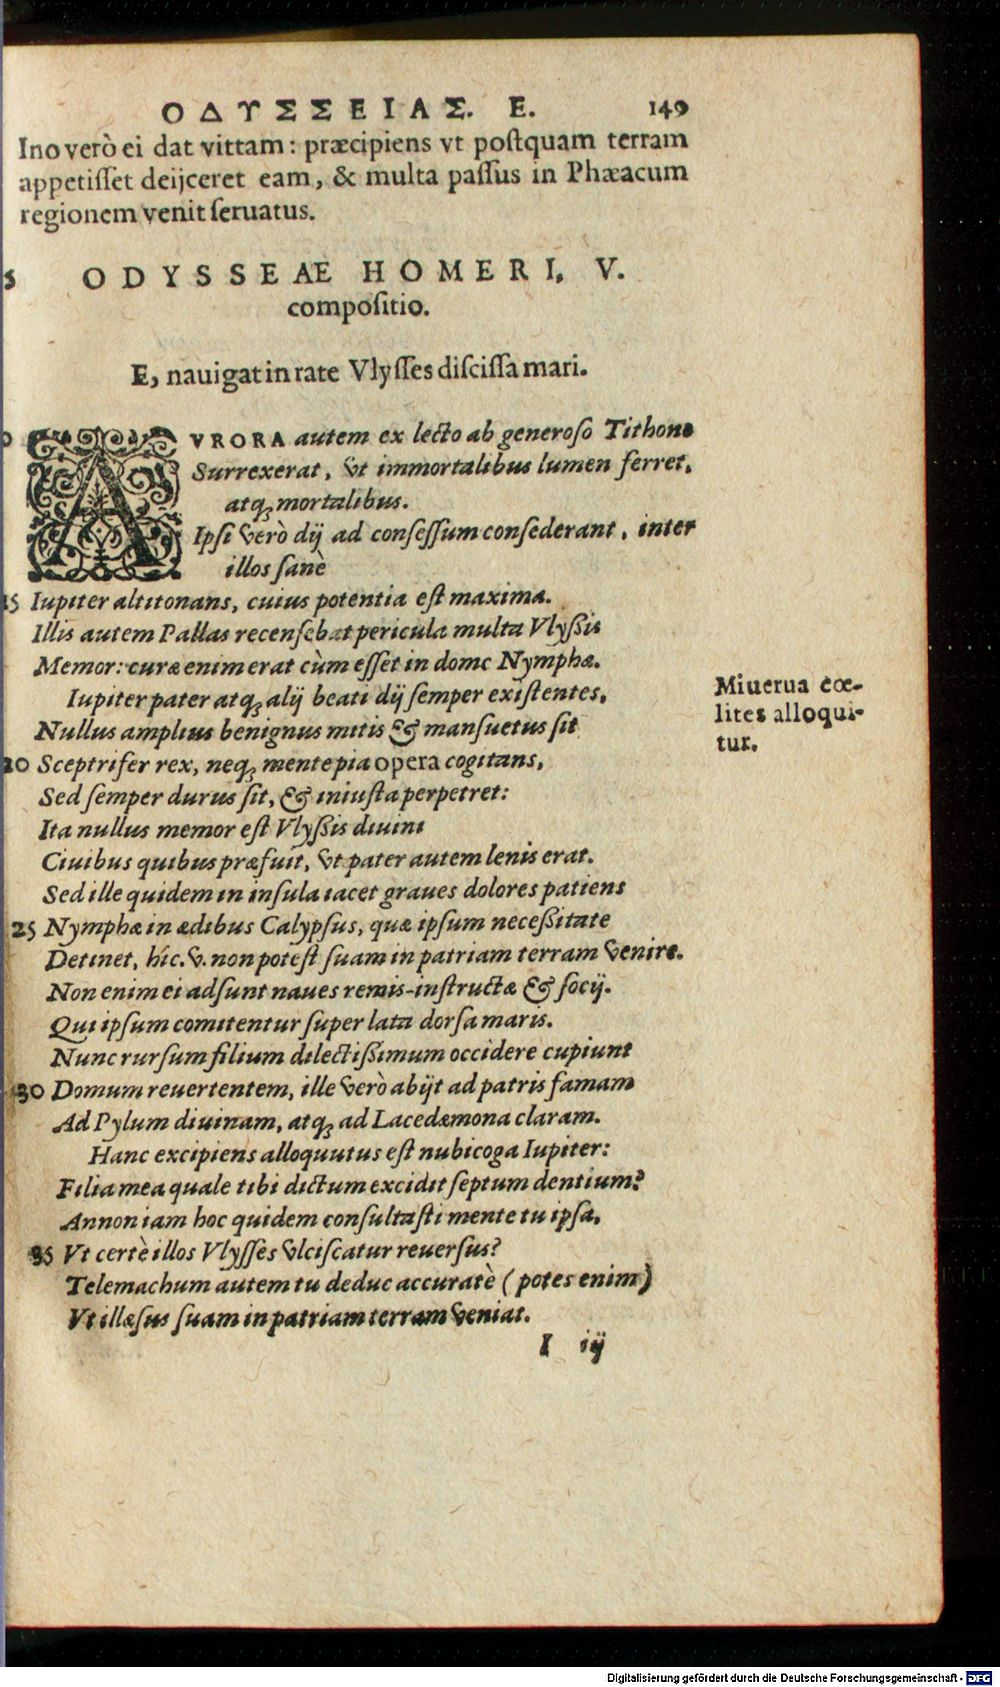 ΟΔΥΣΣΕΙΑΣ. E. 149
Ino verò ei dat vittam: præcipiens vt postquam terram
appetisset deijceret eam, & multa passus in Phæacum
regionem venit seruatus.
5 ODYSSEAE HOMERI, V.
compositio.
E, nauigat in rate Vlysses discissa mari.
AVRORA autem ex lecto ab generoso Tithono
Surrexerat, vt immortalibus lumen ferret,
atq; mortalibus.
Ipsi verò dij ad consessum consederant, inter
illos sanè
15 Iupiter altitonans, cuius potentia est maxima.
Illis autem Pallas recensebat pericula multa Vlyßis
Memor: curæ enim erat cùm esset in domo Nymphæ.
Iupiter pater atq; alij beati dij semper existentes,
Nullus amplius benignus mitis & mansuetus sit
20 Sceptrifer rex, neq; mente pia opera cogitans,
Sed semper durus sit, & iniusta perpetret:
Ita nullus memor est Vlyßis diuini
Ciuibus quibus præfuit, vt pater autem lenis erat.
Sed ille quidem in insula iacet graues dolores patiens
25 Nymphæ in ædibus Calypsus, quæ ipsum neceßitate
Detinet, híc. v. non potest suam in patriam terram venire.
Non enim ei adsunt naues remis-instructæ & socij.
Qui ipsum comitentur super lata dorsa maris.
Nunc rursum filium dilectißimum occidere cupiunt
30 Domum reuertentem, ille verò abijt ad patris famam
Ad Pylum diuinam, atq; ad Lacedæmona claram.
Hanc excipiens alloquutus est nubicoga Iupiter:
Filia mea quale tibi dictum excidit septum dentium?
Annon iam hoc quidem consultasti mente tu ipsa,
35 Vt certè illos Vlysses vlciscatur reuersus?
Telemachum autem tu deduc accuratè (potes enim)
Vt illæsus suam in patriam terram veniat.
I iij
Miuerua cœ-
lites alloqui-
tur.
Digitalisierung gefördert durch die Deutsche Forschungsgemeinschaft - DFG